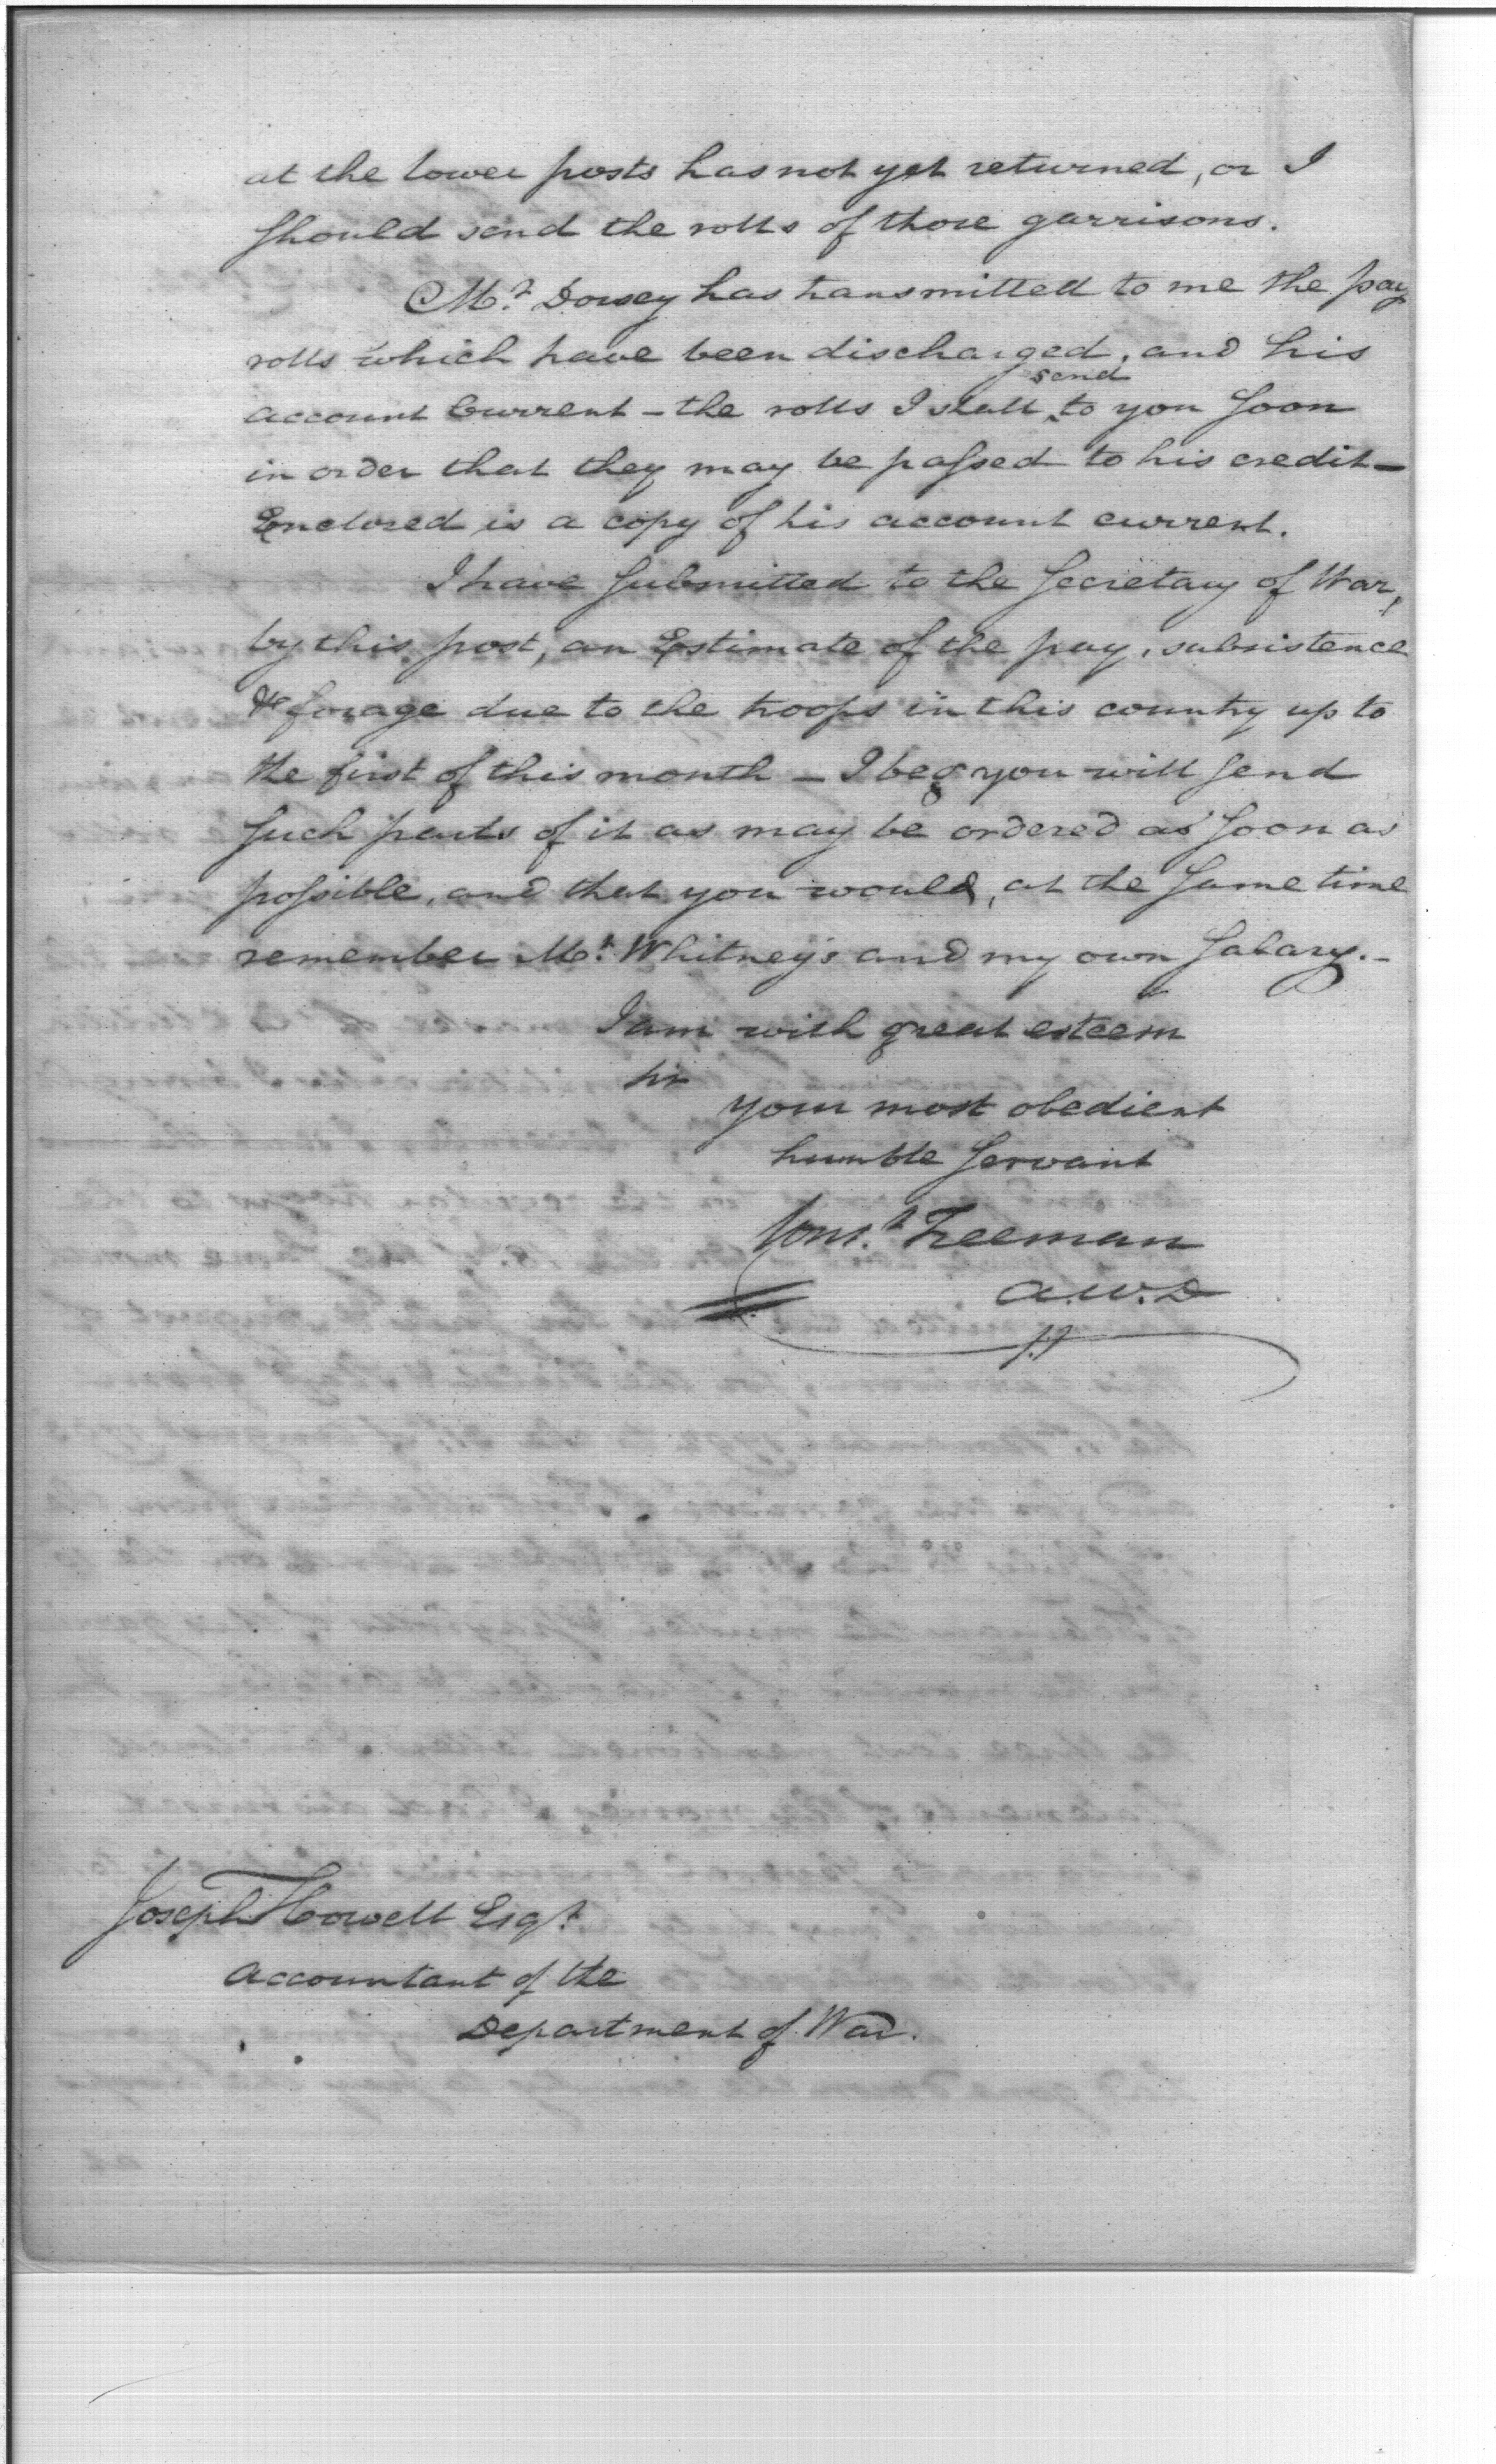 at the lower posts has not yet returned, or I
should send the rolls of those garrisons.
Mr. Dorsey has transmitted to me the pay
rolls which have been discharged, and his
account Current - the rolls I shall send to you soon
in order that they may be passed to his credit -
Enclosed is a copy of his account current.
I have submitted to the Secretary of War,
by this post, an Estimate of the pay, subsistence
& forage due to the troops in this country up to
the first of this month - I beg you will send
such parts of it as may be ordered as soon as
possible, and that you would, at the same time
remember Mr. Whitney's and my own salary. -
I am with great esteem
sir
your most obedient
humble servant
Const. Freeman
A.W.D
Joseph Howell Esqr.
Accountant of the
Department of War.